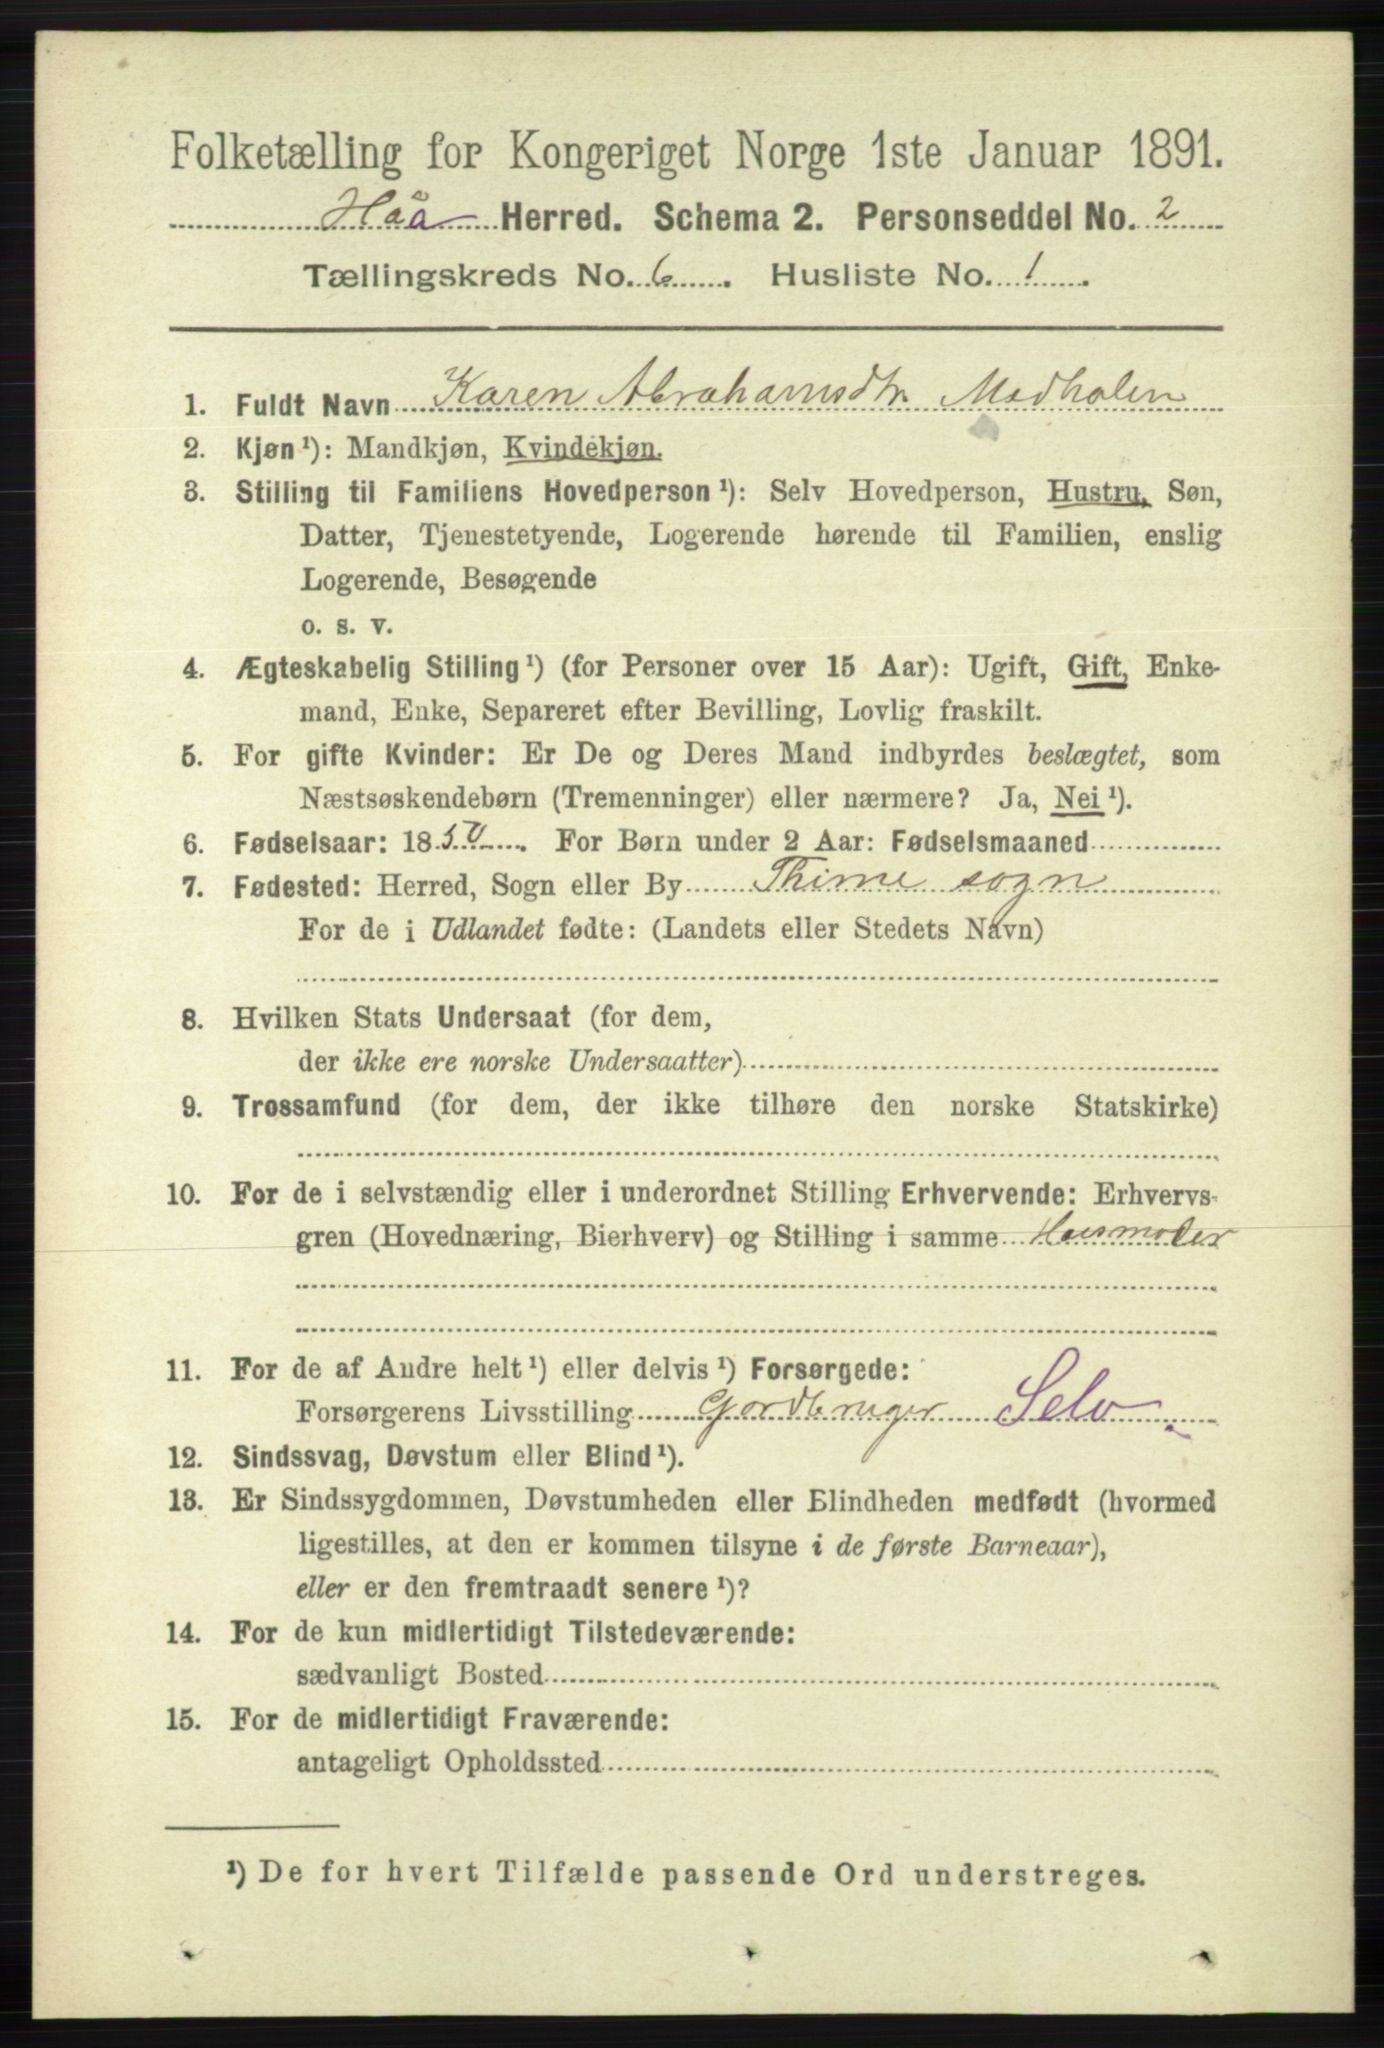 Folketælling for Kongeriget Norge 1ste Januar 1891.
Håa Herred. Schema 2. Personseddel No. 2
Tællingskreds No. 6. Husliste No. 1.
1. Fuldt Navn Karen Abrahamsdtr Modhalen
2. Kjøn¹): Mandkjøn, Kvindekjøn.
3. Stilling til Familiens Hovedperson¹): Selv Hovedperson, Hustru, Søn,
Datter, Tjenestetyende, Logerende hørende til Familien, enslig
Logerende, Besøgende
o. s. v.
4. Ægteskabelig Stilling¹) (for Personer over 15 Aar): Ugift, Gift, Enke-
mand, Enke, Separeret efter Bevilling, Lovlig fraskilt.
5. For gifte Kvinder: Er De og Deres Mand indbyrdes beslægtet, som
Næstsøskendebørn (Tremenninger) eller nærmere? Ja, Nei¹).
6. Fødselsaar: 1850. For Børn under 2 Aar: Fødselsmaaned
7. Fødested: Herred, Sogn eller By Thime sogn
For de i Udlandet fødte: (Landets eller Stedets Navn)
8. Hvilken Stats Undersaat (for dem,
der ikke ere norske Undersaatter)
9. Trossamfund (for dem, der ikke tilhøre den norske Statskirke)
10. For de i selvstændig eller i underordnet Stilling Erhvervende: Erhvervs-
gren (Hovednæring, Bierhverv) og Stilling i samme Husmoder
11. For de af Andre helt¹) eller delvis¹) Forsørgede:
Forsørgerens Livsstilling Gordbruger Selv
12. Sindssvag, Døvstum eller Blind¹).
13. Er Sindssygdommen, Døvstumheden eller Blindheden medfødt (hvormed
ligestilles, at den er kommen tilsyne i de første Barneaar),
eller er den fremtraadt senere¹)?
14. For de kun midlertidigt Tilstedeværende:
sædvanligt Bosted
15. For de midlertidigt Fraværende:
antageligt Opholdssted
¹) De for hvert Tilfælde passende Ord understreges.